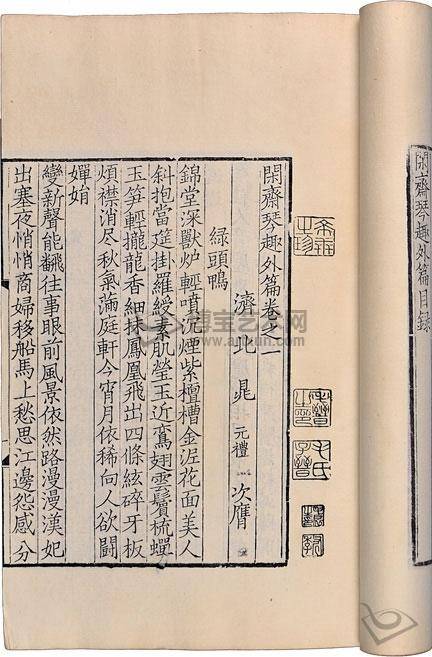 閑齋琴趣外篇目録
閑齋琴趣外篇卷之一
濟北 晁 元禮 次膺
綠頭鴨
錦堂深獸炉輕噴沉煙紫檀槽金泥花面美人
斜抱當筵掛羅綬素肌瑩玉近鸞翅雲鬢梳蟬
玉笋輕攏龍香細抹鳳凰飛出四條絃碎牙板
煩襟消尽秋氣滿庭軒今宵月依稀向人欲闘
嬋娟
變新聲能翻往事眼前風景依然路漫漫漢妃
出塞夜悄悄商婦移船馬上愁思江邊怨感分
毛氏
子晉
博宝艺术网